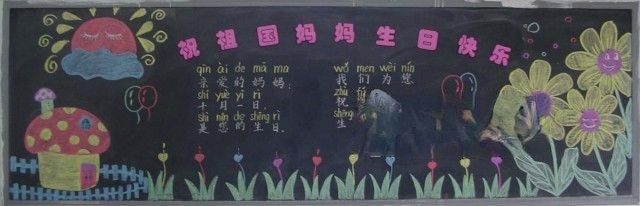 祝祖国妈妈生日快乐
qīn ài de mā ma
亲爱的妈妈：
shí yuè yī rì
十月一日，
shì nín de shēng rì
是您的生日。
wǒ men wèi nín
我们为您
zhù
祝
shēng
生